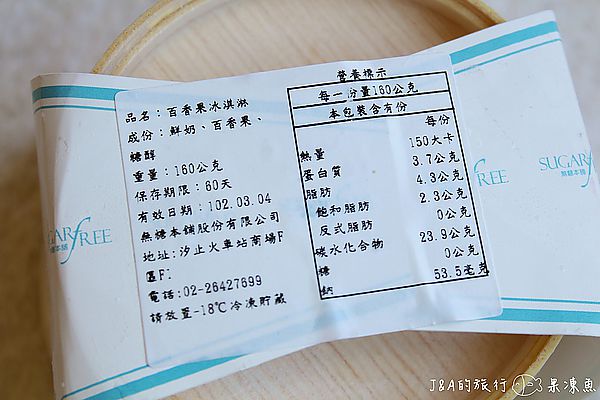 品名：百香果冰淇淋
成份：鮮奶、百香果、
糖醇
重量：160公克
保存期限：60天
有效日期：102.03.04
無糖本舖股份有限公司
地址：汐止火車站商場F
區F1
電話：02-26427699
請放置-18℃冷凍貯藏
營養標示
每一份量160公克
本包裝含有份
每份
熱量 150大卡
蛋白質 3.7公克
脂肪 4.3公克
飽和脂肪 2.3公克
反式脂肪 0公克
碳水化合物 23.9公克
糖 0公克
鈉 53.5毫克
GARfREE
SUGARfREE
無糖本舖
J&A的旅行
果凍魚